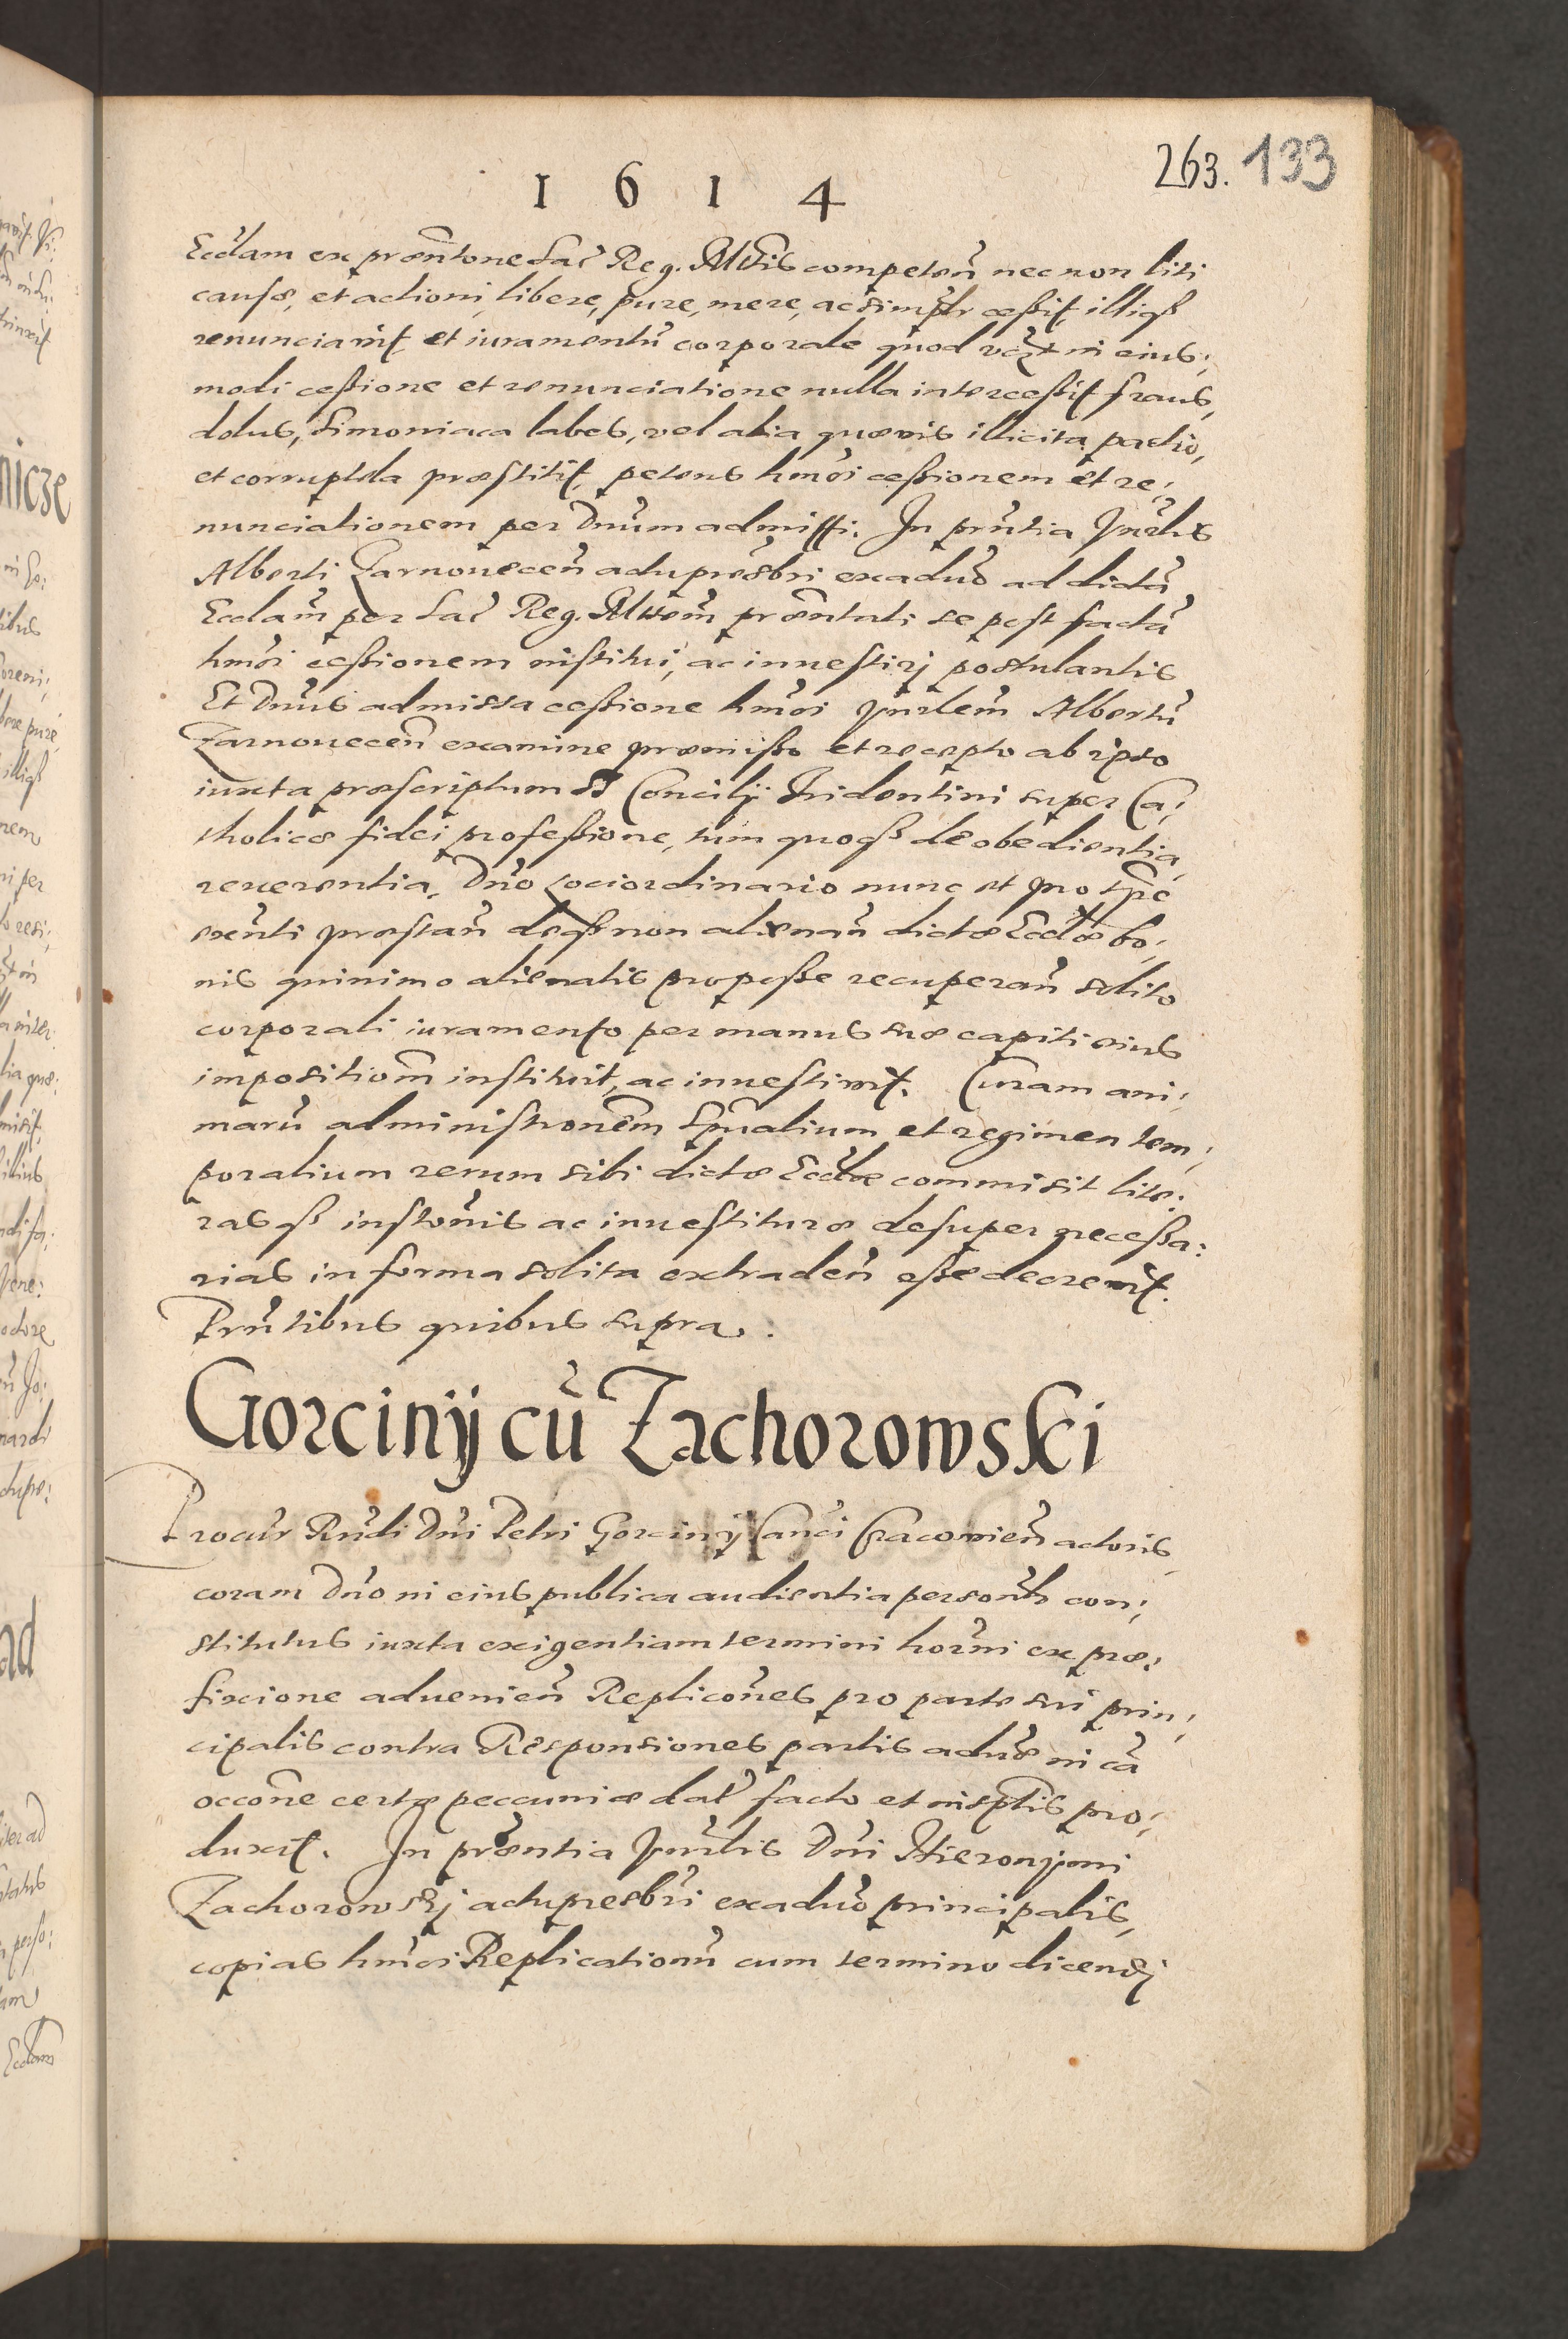 263. 133
1614
Eccłam ex præñtone Sac̃ Reg. Mttis competeñ nec non liti
causæ, et actioni, libere, pure, mere, ac simplr cessit, illiqꝫ
renunciavit, et iuramentũ corporale quod in eius:
modi cessione et renunciatione nulla intercessit fraus,
dolus, simoniaca labes, vel alia quævis illicita pactio,
et corruptela præstitit, petens hmõi cessionem et re:
nunciationem per Dnũm admitti. In pñtia Hnrlis
Alberti Zarnouecen̄ adupresbri exaduo ad dictã
Ecclam̃ per Sac̃ Reg. Mttem̃ præñtati se post factã
hmõi cessionem institui, ac inuestirj postulantis
Et Dnũs admissa cessione hmõi Hnrlem̃ Albertũ
Zarnouecen̄ examine præmisso et recepto ab ipso
iuxta præscriptum SS Concilij Tridentini super Ca:
tholicæ fidei professione, tum quoqꝫ de obedientia,
reuerentia, Dño Lociordinario nunc et pro tp̃e
exñti præstan̄ deqꝫ non alienan̄ dictæ Eccłæ bo:
nis quinimo alienatis proposse recuperan̄ solito
corporali iuramento per manus suæ capiti eius
impositiom̃ instituit, ac inuestivit. Curam ani:
marũ administronem̃ spũalium et regimen tem:
poralium rerum sibi dictæ Eccłæ commisit lite:
ras qꝫ instõnis ac inuestituræ desuper necessa:
rias in forma solita extraden̄ esse decrevit.
Pñtibus quibus supra.
Gorcinij cũ Zachorowski
Procur̃ Rñdi Dñi Petri Gorcinij Canci Cracovien̄ actoris
coram Dño in eius publica audientia personłr con:
stitutus iuxta exigentiam termini horñi ex præ:
fixione aduenien̄ Replicões pro parte sui prin:
cipalis contra Responsiones partis aduæ in cã
occone certæ peccuniæ dat̃ facto et insptis pro:
duxit. In præntia Hnrlis Dñi Hieronymi
Zachorowskj adupresbri exaduo principalis,
copias hmõi Replicationũ cum termino dicendj